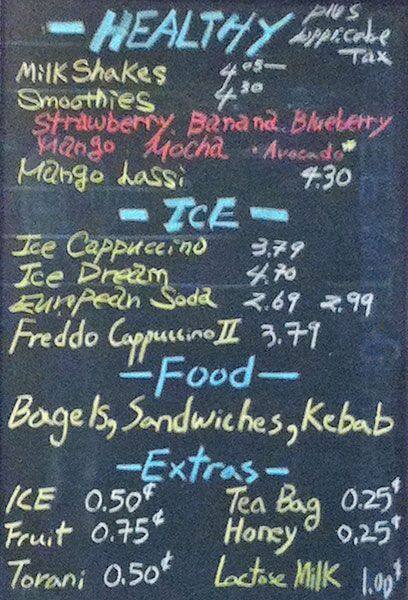 - HEALTHY plus
Applicable
Tax
Milk Shakes 4.05
Smoothies 4.30
Strawberry. Banana. Blueberry
Mango Mocha • Avocado*
Mango Lassi 4.30
- ICE -
Ice Cappuccino 3.79
Ice Dream 4.70
European Soda 2.69 2.99
Freddo Cappuccino II 3.79
- Food -
Bagels, Sandwiches, Kebab
- Extras -
ICE 0.50¢ Tea Bag 0.25¢
Fruit 0.75¢ Honey 0.25¢
Torani 0.50¢ Lactose Milk 1.00¢